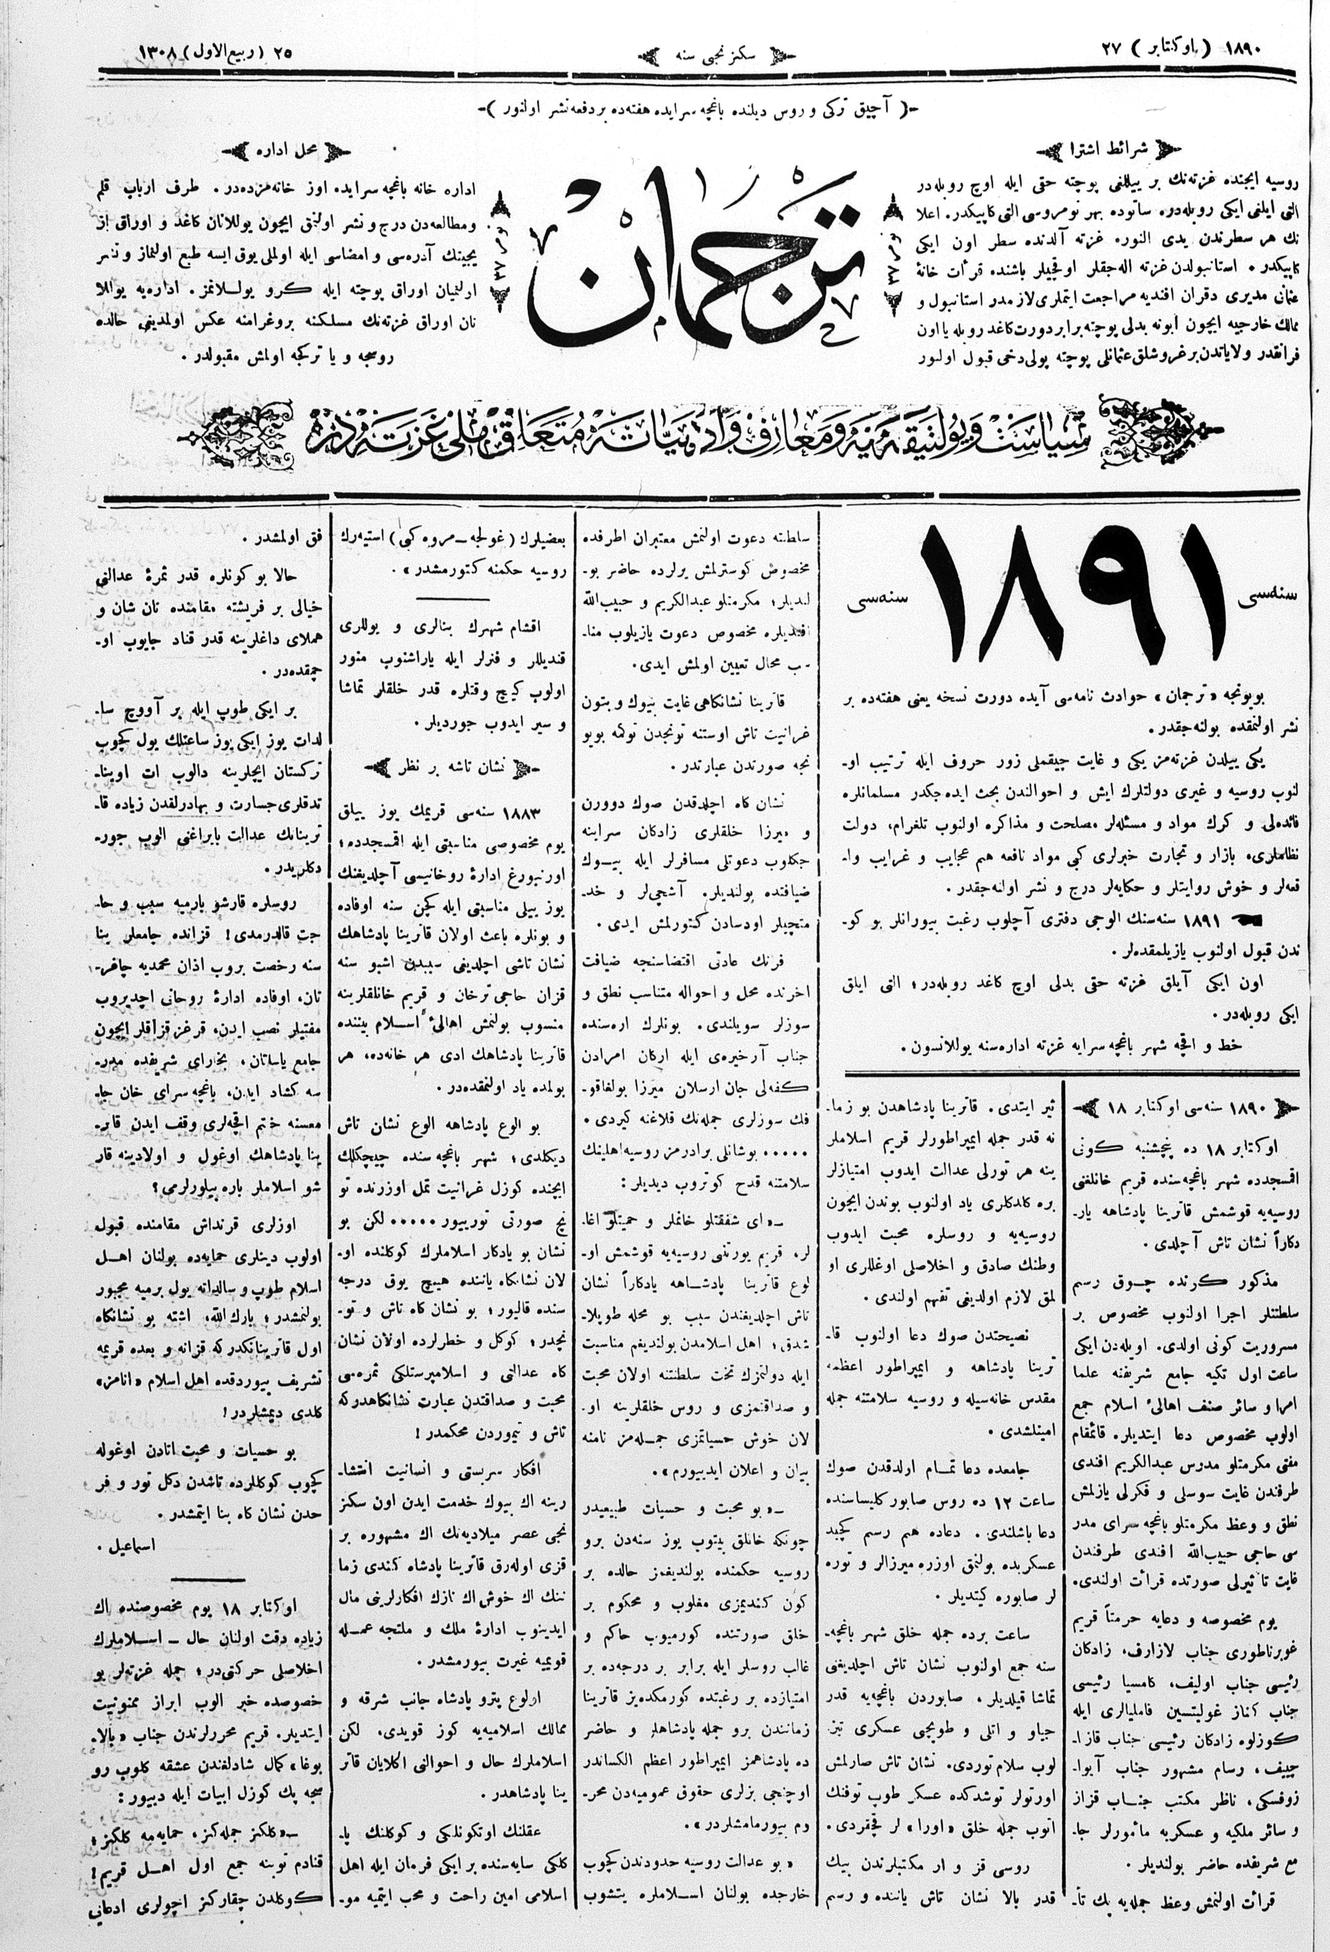 ١٨٩٠ (اوكتابر) ٢٧
سكز نجى سنه
٢٥ (ربيع الاول) ١٣٠٨
-(آچيق تركى و روس ديلنده باغچه سرايده هفته ده بر دفعه نشر اولنور)-
شرائط اشترا
روسيه ايچنده غزته نك بر ييللغى پوچته حقى ايله اوچ روبله در
التى ايلغى ايكى روبله در. ساتوده بهر نومروسى التى كاپيكدر. اعلا
نك هر سطرندن يدى النور. غزته آلدنده سطر اون ايكى
كاپيكدر. استانبولدن غزته اله جقلر اوقچيلر باشنده قرأت خانهٔ
عثمانى مديرى دقران افنديه مراجعت ايتملرى لازمدر استانبول و
ممالك خارجيه ايچون ابونه بدلى پوچته برابر دورت كاغد روبله يا اون
فرانقدر ولاياتدن بر غروشلق عثمانلى پوچته پولى دخى قبول اولور
ترجمان
نومرو ٣٧
نومرو ٣٧
محل اداره
اداره خانه باغچه سرايده اوز خانه مزده در. طرف ارباب قلم
ومطالعه دن درج و نشر اولنق ايچون يوللانان كاغد و اوراق
يجينك آدره سى و امضاسى ايله اولملى يوق ايسه طبع اولنماز و نشر
اولنميان اوراق پوچته ايله كرو يوللانمز. اداره يه يوللا
نان اوراق غزته نك مسلكنه پروغرامنه عكس اولمدينى حالده
روسجه و يا تركجه اولمش مقبولدر.
سياست و پولتيقه يه و معارف و ادبياته متعلق ملى غزته در
سنه سى ١٨٩١ سنه سى
بويونجه «ترجمان» حوادث نامه سى آيده دورت نسخه يعنى هفته ده بر
نشر اولنمقده بولنه جقدر.
يكى ييلدن غزته مز يكى و غايت جيقملى زور حروف ايله ترتيب او-
لنوب روسيه و غيرى دولتلرك ايش و احوالندن بحث ايده جكدر مسلمانلره
فائده لى و كرك مواد و مسئله لر مصلحت و مذاكره اولنوب تلغرام، دولت
نظاملرى، بازار و تجارت خبرلرى كبى مواد نافعه هم عجايب و غرايب وا-
قعه لر و خوش روايتلر و حكايه لر درج و نشر اولنه جقدر.
١٨٩١ سنه سنك الوجى دفترى آچلوب رغبت بيورانلر بو كو-
ندن قبول اولنوب يازيلمقده لر.
اون ايكى آيلق غزته حقى بدلى اوچ كاغد روبله در؛ التى ايلق
ايكى روبله در.
خط و اقچه شهر باغچه سرايه غزته اداره سنه يوللانسون.
١٨٩٠ سنه سى اوكتابر ١٨
اوكتابر ١٨ ده پنچشنبه كونى
اقمسجدده شهر باغچه سنده قريم خانلغنى
روسيه يه قوشمش قاترينا پادشاهه ياد-
دكاراً نشان تاش آچلدى.
مذكور كرنده چوق رسم
سلطنتلر اجرا اولنوب مخصوص بر
مسروريت كونى اولدى. اويله دن ايكى
ساعت اول تكيه جامع شريفنه علما
امرا و سائر صنف اهالىٔ اسلام جمع
اولوب مخصوص دعا ايتديلر. قائمقام
مفتى مكرمتلو مدرس عبدالكريم افندى
طرفندن غايت سوسلى و فكرلى يازلمش
نطق و وعظ مكرمتلو باغچه سراى مدر
سى حاجى حبيب الله افندى طرفندن
غايت تاثيرلى صورتده قرائت اولندى.
يوم مخصوصه و دعايه حرمتاً قريم
غوبرناطورى جناب لازارف، زادكان
رئيسى جناب اوليف، كامسيا رئيسى
جناب كناز غوليتسين فاميليالرى ايله
كوزلوه زادكان رئيسى جناب قازا-
چييف، رسام مشهور جناب آيوا-
زوفسكى، ناظر مكتب جناب قزاز
و سائر ملكيه و عسكريه مأمورلر جا-
مع شريفده حاضر بولنديلر.
قرائت اولنمش وعظ جمله يه پك تأ-
ثير ايتدى. قاترينا پادشاهدن بو زما-
نه قدر جمله ايمپراطورلر قريم اسلاملر
ينه هر تورلى عدالت ايدوب امتيازلر
بره كلدكلرى ياد اولنوب بوندن ايچون
روسيه يه و روسلره محبت ايدوب
وطنك صادق و اخلاصلى اوغللرى او
لمق لازم اولديغى تفهم اولندى.
نصيحتدن صوك دعا اولنوب قا-
ترينا پادشاهه و ايمپراطور اعظمه
مقدس خانه سيله و روسيه سلامتنه جمله
امينلشدى.
جامعده دعا تمام اولدقدن صوك
ساعت ١٢ ده روس صابور كليساسنده
دعا باشلندى. دعاده هم رسم كچيد
عسكريده بولنمق اوزره ميرزالر و توره
لر صابوره كيتديلر.
ساعت برده جمله خلق شهر باغچه-
سنه جمع اولنوب نشان تاش اچلديغنى
تماشا قيلديلر. صابوردن باغچه يه قدر
جياو و اتلى و طوبجى عسكرى تيز
لوب سلام تورردى. نشان تاش صارلمش
اورتولر توشدكده عسكر طوپ توفنك
اتوب جمله خلق «اورا» لر قچقردى.
روسى قز و ار مكتبلرندن بيك
قدر بالا نشان تاش ياننده و رسم
سلطنته دعوت اولنمش معتبران اطرفده
مخصوص كوسترلمش يرلرده حاضر بو-
لنديلر؛ مكرمتلو عبدالكريم و حبيب الله
افنديلره مخصوص دعوت يازيلوب منا-
سب محال تعيين اولمش ايدى.
قاترينا نشانكاهى غايت بيوك و بتون
غرانيت تاش اوستنه تونجدن توكمه بويو
نجه صورتدن عبارتدر.
نشان كاه اچلدقدن صوك دوورن
و ميرزا خلقلرى زادكان سراينه
جكلوب دعوتلى مسافرلر ايله بيوك
ضيافتده بولنديلر. آشجى لر و خد-
متچيلر اودسادن كتورلمش ايدى.
فرنك عادتى اقتضاسنجه ضيافت
اخرنده محل و احواله متناسب نطق و
سوزلر سويلندى. بونلرك اره سنده
جناب آرخيره ى ايله اركان امرادن
كفه لى جان ارسلان ميرزا بولغاقو-
فك سوزلرى جمله نك قلاغنه كيردى.
..... بوشانلى برادرمز روسيه اهلينك
سلامتنه قدح كوتروب ديديلر:
ـ«اى شفقتلو خانملر و حميتلو اغا-
لر، قريم يورتنى روسيه يه قوشمش او-
لوع قاترينا پادشاهه يادكاراً نشان
تاش اچلديغندن سبب بو محله طويلا-
شدق؛ اهل اسلامدن بولنديغم مناسبت
ايله دولتمزك تخت سلطنتنه اولان محبت
و صداقتمزى و روس خلقلرينه او-
لان خوش حسياتمزى جمله مز نامنه
بيان و اعلان ايديبورم».
ـ«بو محبت و حسيات طبيعيدر
چونكه خانلق بيتوب يوز سنه دن برو
روسيه حكمنده بولنديغمز حالده بر
كون كنديمزى مغلوب و محكوم بر
خلق صورتنده كورميوب حاكم و
غالب روسلر ايله برابر بر درجه ده بر
امتيازده بر رغبتده كورمكده يز قاترينا
زماننده برو جمله پادشاهلر و حاضر
ده پادشاهمز ايمپراطور اعظم الكساندر
اوچنجى بزلرى حقوق عموميه دن محر-
وم بيورمامشلردر».
«بو عدالت روسيه حدودندن كچوب
خارجده بولنان اسلاملره يتشوب
بعضيلرك (غولجه ـ مروه كبى) استيه رك
روسيه حكمنه كتورمشدر».
اقشام شهرك بنالرى و يوللرى
قنديللر و فنرلر ايله ياراشنوب منور
اولوب كيچ وقتلره قدر خلقلر تماشا
و سير ايدوب جورديلر.
نشان تاشه بر نظر
١٨٨٣ سنه سى قريمك يوز ييللق
يوم مخصوصى مناسبتى ايله اقمسجدده؛
اورنبورغ ادارهٔ روحانيسى آچلديغنك
يوز ييلى مناسبتى ايله كچن سنه اوفاده
و بونلره باعث اولان قاترينا پادشاهك
نشان تاشى اچلديغى سببدن اشبو سنه
قزان حاجى ترخان و قريم خانلقلرينه
منسوب بولنمش اهالىٔ اسلام بيننده
قاترينا پادشاهك ادى هر خانه ده، هر
يولده ياد اولنمقده در.
بو الوع پادشاهه الوع نشان تاش
ديكلدى؛ شهر باغچه سنده چيچكلك
ايچنده كوزل غرانيت تمل اوزرنده تو
نچ صورتى تورييور..... لكن بو
نشان بو يادكار اسلاملرك كوكلنده او-
لان نشانكاه ياننده هيچ يوق درجه
سنده قاليور؛ بو نشان كاه تاش و تو-
نجدر؛ كوكل و خطرلرده اولان نشان
كاه عدالتى و اسلامپرستلكى ثمره سى
محبت و صداقتدن عبارت نشانكاهدر كه
تاش و تيموردن محكمدر!
افكار سربستى و انسانيت انتشا-
رينه اك بيوك خدمت ايدن اون سكز
نجى عصر ميلاديه نك اك مشهوره بر
قزى اوله رق قاترينا پادشاه كندى زما
ننك اك خوش اك نازك افكارلرينى مال
ايدينوب ادارهٔ ملك و ملتجه عمله
قويميه غيرت بيورمشدر.
ارلوع پترو پادشاه جانب شرقه و
ممالك اسلاميه يه كوز قويدى. لكن
اسلاملرك حال و احوالنى اكلايان قاتر
ينا پادشاهدر.
عقلنك اوتكونلكى و كوكلنك پا-
كلكى سايه سنده بر ايكى فرمان ايله اهل
اسلامى امين راحت و محب ايتميه مو-
فق اولمشدر.
حالا بو كونلره قدر ثمرهٔ عدالتى
خيالى بر فريشته مقامنده تان شان و
هملاى داغلرينه قدر قناد جايوب او-
چمقده در.
بر ايكى طوپ ايله بر آووچ سا-
لدات يوز ايكى يوز ساعتلك يول كچوب
تركستان ايچلرينه دالوب ات اوينا-
تدقلرى جسارت و بهادرلقدن زياده قا-
ترينانك عدالت بايراغنى الوب جور-
دكلريدر.
روسلره قارشو يارميه سبب و حا-
جت قالدرمدى! قزانده جامعلر بنا
سنه رخصت بروب اذان محمديه جاقر-
تان، اوفاده ادارهٔ روحانى اچديروب
مفتيلر نصب ايدن، قرغز قزاقلر ايچون
جامع ياپلتان، بخاراى شريفده مدر-
سه كشاد ايدن، باغچه سراى خان جا-
معسنه ختم اقچه لرى وقف ايدن قاتر-
ينا پادشاهك اوغول و اولادينه قار
شو اسلاملر ياره بيلورلرمى؟
اوزلرى قرنداش مقامنده قبول
اولوب دينلرى حمايه ده بولنان اهل
اسلام طوپ و سالداته يول برميه مجبور
بولنمشدر؛ بارك الله، اشته بو نشانكاه
اول قاترينانكدر كه قزانه و بعده قريمه
تشريف بيوردقده اهل اسلام «انامز»
كلدى ديمشلردر!
بو حسيات و محبت اتادن اوغوله
كچوب كوكللرده تاشدن دكل نور و فر
حدن نشان كاه بنا ايتمشدر.
اسماعيل.
اوكتابر ١٨ يوم مخصوصنده اك
زياده دقت اولنان حال ـ اسلاملرك
اخلاصلى حركتى در؛ جمله غزته لر بو
خصوصده خبر الوب ابراز ممنونيت
ايتديلر. قريم محررلرندن جناب «بالا-
بوغا» كمال شادلغندن عشقه كلوب رو
سجه پك كوزل ابيات ايله دييور:
ـ«كلكز جمله كز، حمايه مه كلكز؛
قنادم توبنه جمع اول اهل قريم!
كوكلدن چقاركز اچولرى ادعانى